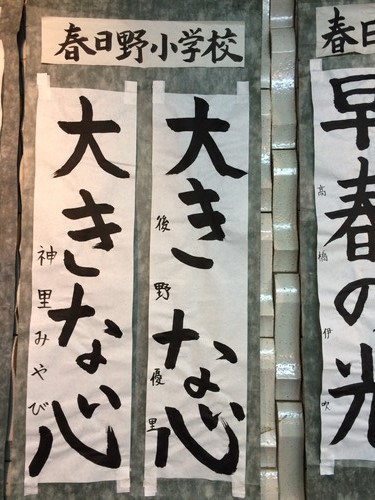 春日野小学校
大きな心
後野優里
大きな心
神里みやび
春日
早春の光
高橋伊吹